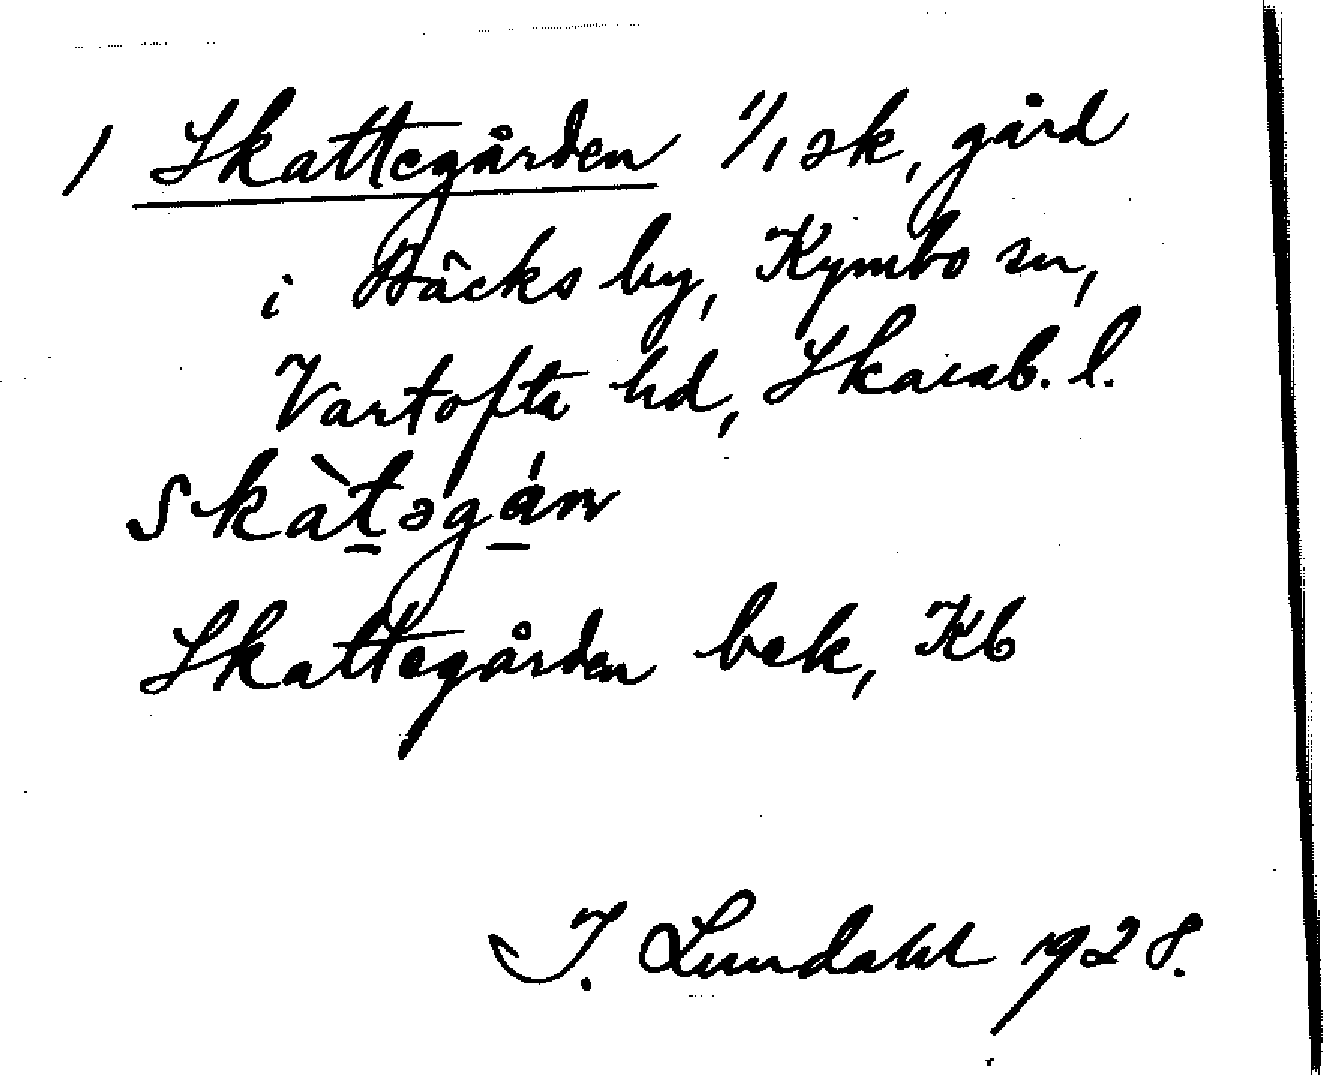 1 Skattegården 1/1 sk, gård
i Bäcks by, Kymbo sn,
Vartofta hd, Skarab. l.
skàtəgán
Skattegården bek, Kb
I. Lundahl 1928.